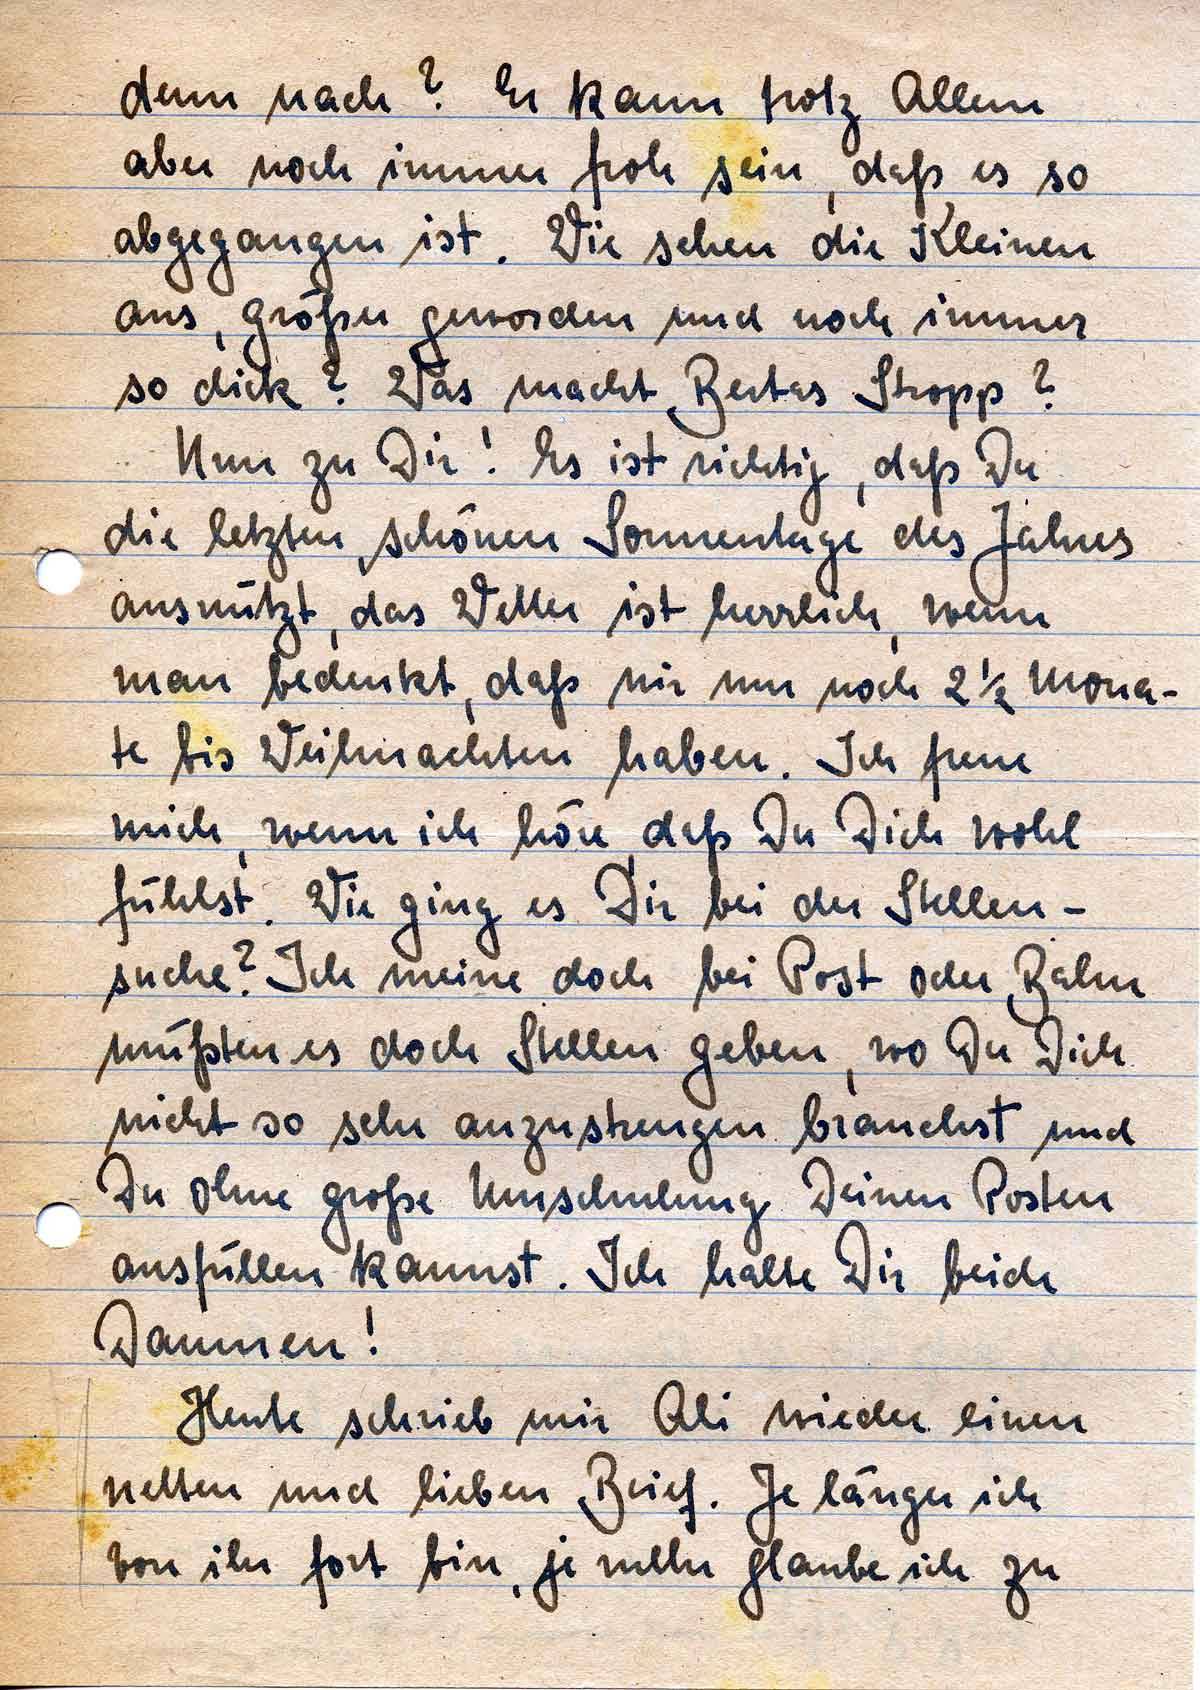 denn nach? Er kann trotz Allem
aber noch immer froh sein, daß es so
abgegangen ist. Wie sehen die Kleinen
aus, größer geworden und noch immer
so dick? Was macht Bertas Stropp?
Nun zu Dir! Es ist richtig, daß Du
die letzten schönen Sonnentage des Jahres
ausnützt, das Wetter ist herrlich, wenn
man bedenkt, daß wir nur noch 2 ½ Mona-
te bis Weihnachten haben. Ich freue
mich, wenn ich höre daß Du Dich wohl
fühlst. Wie ging es Dir bei der Stellen-
suche? Ich meine doch bei Post oder Bahn
müßten es doch Stellen geben, wo Du Dich
nicht so sehr anzustrengen brauchst und
Du ohne große Umschulung Deinen Posten
ausfüllen kannst. Ich halte Dir beide
Daumen!
Heute schrieb mir Ali wieder einen
netten und lieben Brief. Je länger ich
von ihr fort bin, je mehr glaube ich zu